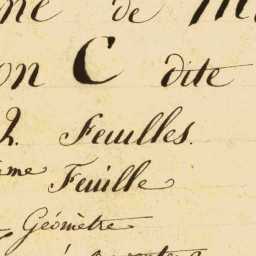 ne de
on C dite
2. Feuilles.
ème Feuille
Géomètre